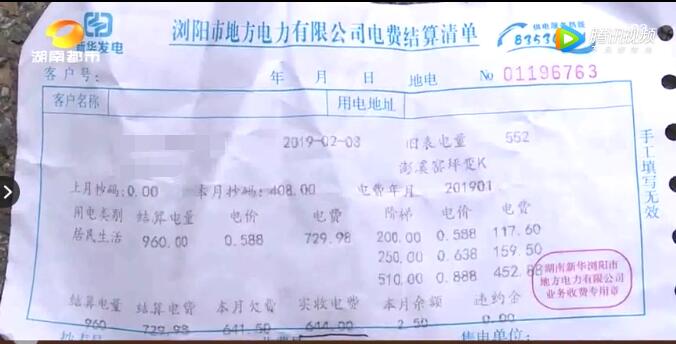 湖南都市
新华发电
浏阳市地方电力有限公司电费结算清单
供电服务热线
8353
腾讯视频
客户号: 年 月 日 地电 No 01196763
客户名称 用电地址
手工填写无效
2019-02-03 旧表电量 552
澎溪窑坪变K
上月抄码:0.00 本月抄码:408.00 电费年月 201901
用电类别 结算电量 电价 电费 阶梯 电价 电费
居民生活 960.00 0.588 729.98 200.00 0.588 117.60
250.00 0.638 159.50
510.00 0.888 452.88
湖南新华浏阳市
地方电力有限公司
业务收费专用章
结算电量 结算电费 本月欠费 实收电费 本月余额 违约金
960 729.98 641.50 644.00 2.50 0.00
售电单位: